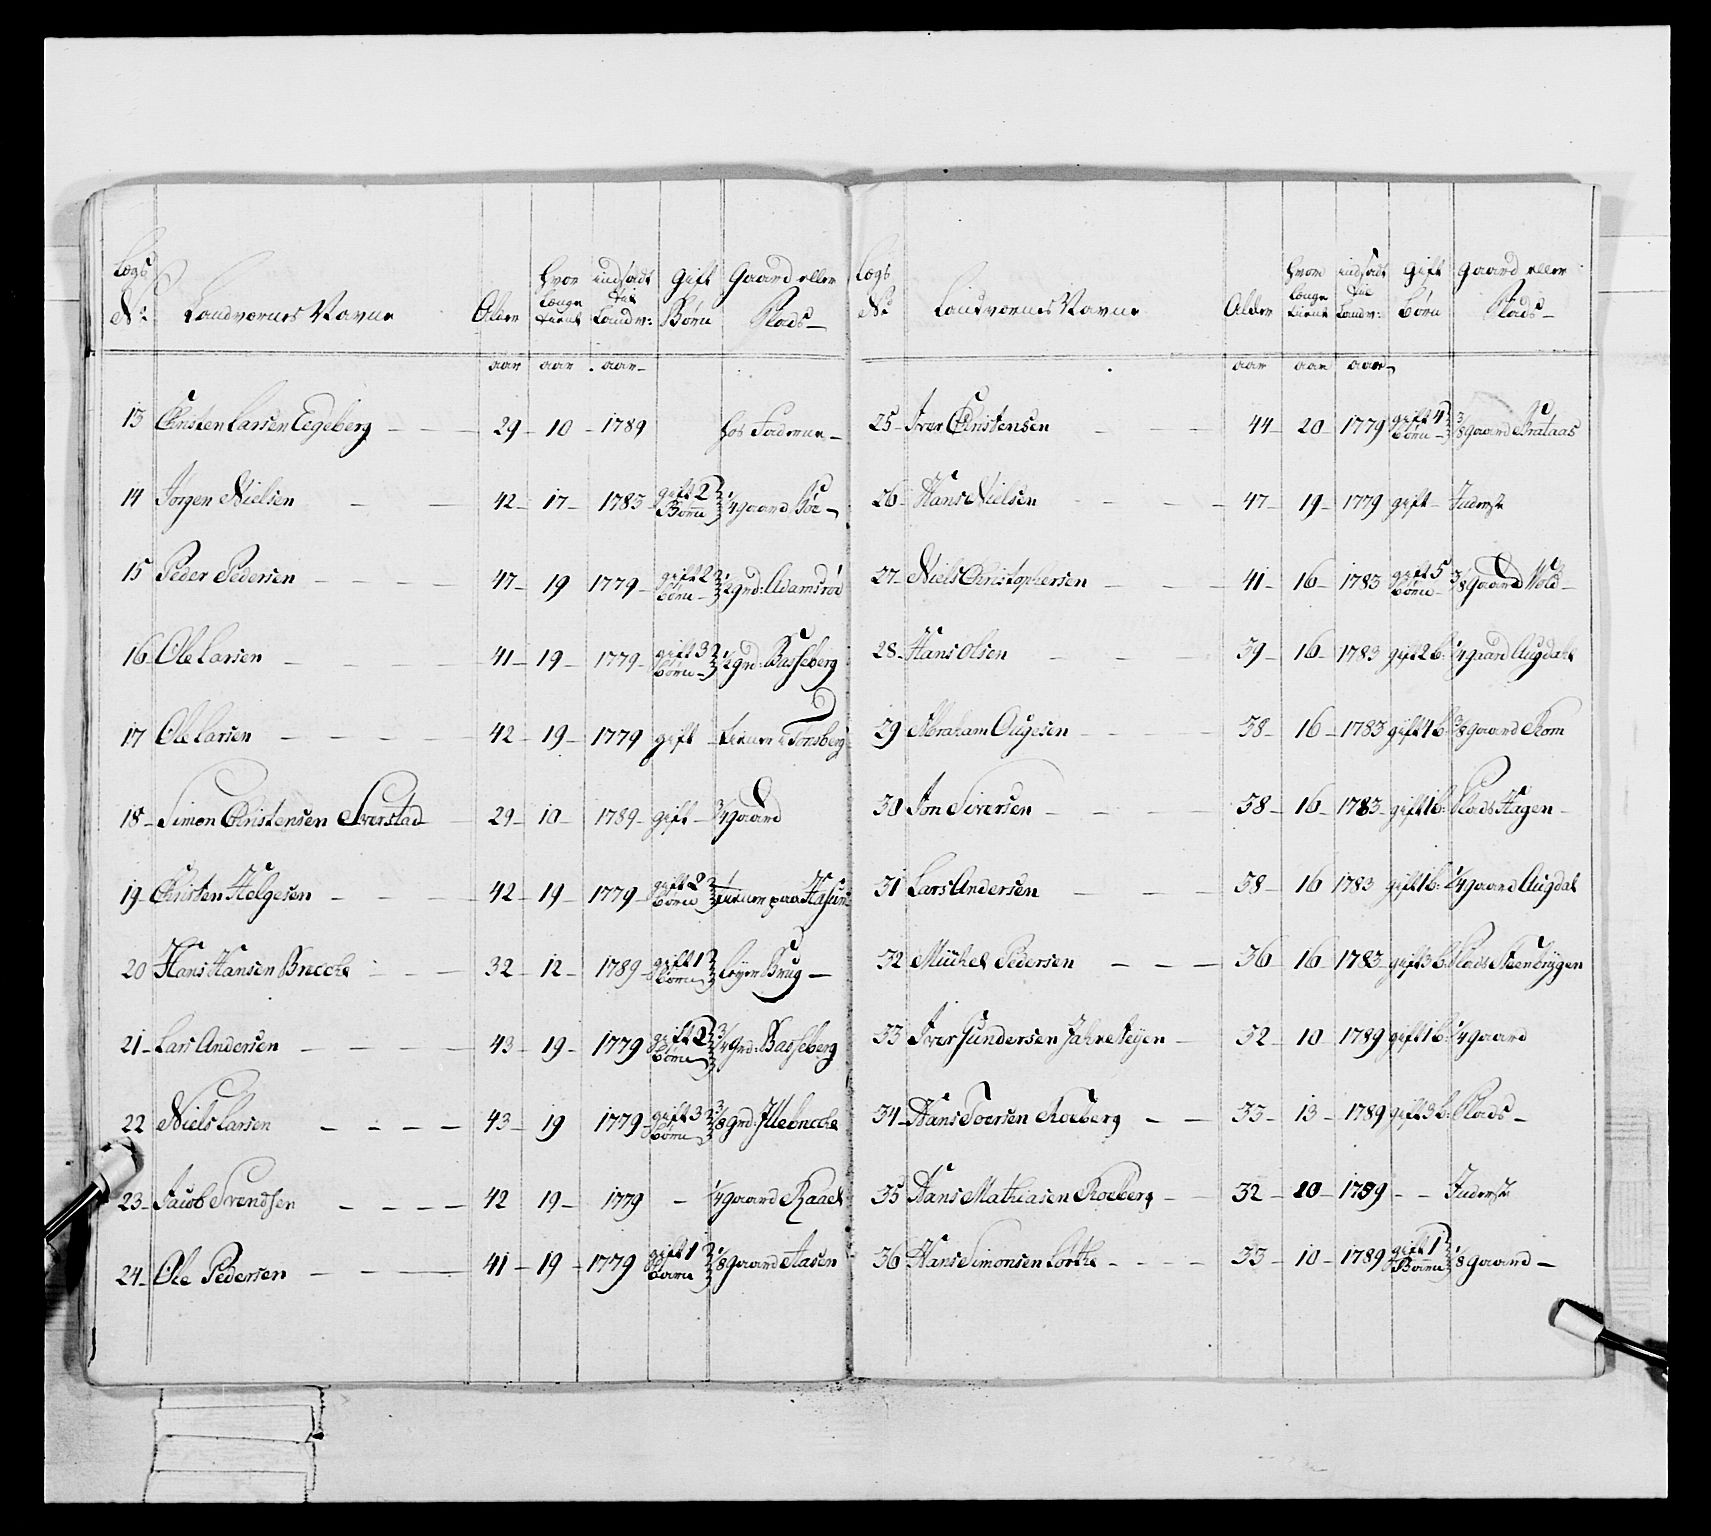 Lægs No Landværnes Navne Alder hvor længe tient indsadt til Landv: Gift Børn Gaard eller Plads
aar aar aar
13 Christen Larsen Eegeberg 29 10 1789 hos Faderne
14 Jørgen Nielsen 42 17 1783 gift 2 Børn 1/4 gaard Bøe
15 Peder Pedersen 47 19 1779 gift 2 børn 1/2 grd: Adamsrød
16 Ole Larsen 41 19 1779 gift 3 børn 1/2 grd: Basseberg
17 Ole Larsen 42 19 1779 gift tiener i Tønsberg
18 Simon Christensen Sverstad 29 10 1789 gift 3/4 gaard
19 Christen Helgesen 42 19 1779 gift 2 børn tiener paa
20 Hans Hansen Brecke 32 12 1789 gift 1 børn Brug
21 Lars Andersen 43 19 1779 gift 2 børn 3/4 grd: Basseberg
22 Niels Larsen 43 19 1779 gift 3 børn 3/8 grd: Illebrecke
23 Jacob Svendsen 42 19 1779 – 1/4 gaard Raael
24 Ole Pedersen 41 19 1779 gift 1 barn 1/8 gaard Aasen
Lægs No Landværnes Navne Alder hvor længe tient indsadt til Landv: Gift børn gaard eller Plads
aar aar aar
25 Iver Christensen 44 20 1779 gift 4 børn 3/8 gaard Brataas
26 Hans Nielsen 47 19 1779 gift Inderst
27 Niels Christophersen 41 16 1783 gift 5 børn 3/8 gaard Vold
28 Hans Olsen 39 16 1783 gift 2 b: 1/4 gaard Augdahl
29 Abraham Augesen 38 16 1783 gift 4 b: 3/8 gaard Rom
30 Jon Siversen 38 16 1783 gift 1 b: Plads Hagen
31 Lars Andersen 38 16 1783 gift 1 b: 1/4 gaard Augdal
32 Michel Pedersen 36 16 1783 gift 3 b: Plads Steenbrygen
33 Iver Gundersen 32 10 1789 gift 1 b: 1/4 gaard
34 Hans Toersen Roeberg 33 13 1789 gift 3 b: Plads
35 Hans Mathiasen Roeberg 32 10 1789 – – Inderst
36 Hans Simonsen 33 10 1789 gift 1 Barn 1/8 gaard